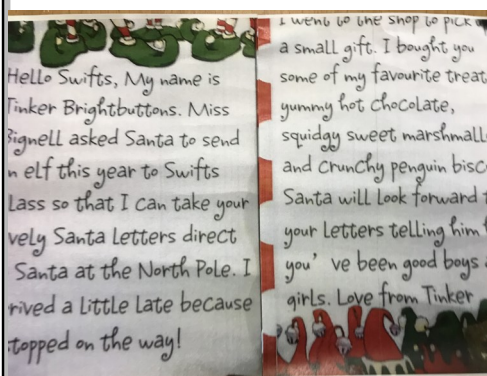 Hello Swifts, My name is
Tinker Brightbuttons. Miss
Bignell asked Santa to send
n elf this year to Swifts
lass so that I can take your
vely Santa Letters direct
Santa at the North Pole. I
rived a little late because
topped on the way!
I went to the shop to pick
a small gift. I bought you
some of my favourite treat
yummy hot chocolate,
squidgy sweet marshmall
and crunchy penguin bisc
Santa will look forward t
your Letters telling him
you've been good boys
girls. Love from Tinker